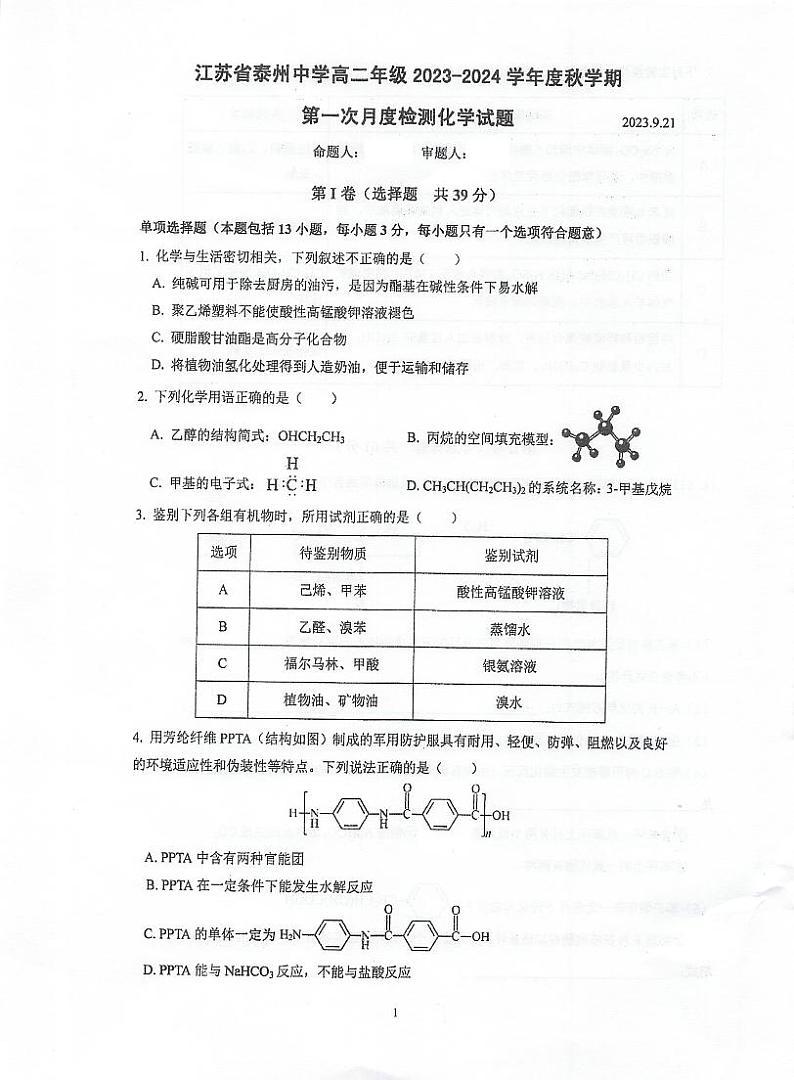 江苏省泰州中学高二年级 2023-2024 学年度秋学期
第一次月度检测化学试题 2023.9.21
命题人： 审题人：
第 I 卷（选择题 共 39 分）
单项选择题（本题包括 13 小题，每小题 3 分，每小题只有一个选项符合题意）
1. 化学与生活密切相关，下列叙述不正确的是（ ）
A. 纯碱可用于除去厨房的油污，是因为酯基在碱性条件下易水解
B. 聚乙烯塑料不能使酸性高锰酸钾溶液褪色
C. 硬脂酸甘油酯是高分子化合物
D. 将植物油氢化处理得到人造奶油，便于运输和储存
2. 下列化学用语正确的是（ ）
A. 乙醇的结构简式：OHCH₂CH₃ B. 丙烷的空间填充模型：
H
C. 甲基的电子式： H:C:H D. CH₃CH(CH₂CH₃)₂ 的系统名称：3-甲基戊烷
3. 鉴别下列各组有机物时，所用试剂正确的是（ ）
选项 待鉴别物质 鉴别试剂
A 己烯、甲苯 酸性高锰酸钾溶液
B 乙醛、溴苯 蒸馏水
C 福尔马林、甲酸 银氨溶液
D 植物油、矿物油 溴水
4. 用芳纶纤维 PPTA（结构如图）制成的军用防护服具有耐用、轻便、防弹、阻燃以及良好
的环境适应性和伪装性等特点。下列说法正确的是（ ）
O O
H N N C C OH
H H n
A. PPTA 中含有两种官能团
B. PPTA 在一定条件下能发生水解反应
O O
C. PPTA 的单体一定为 H₂N N C C OH
H
D. PPTA 能与 NaHCO₃ 反应，不能与盐酸反应
1